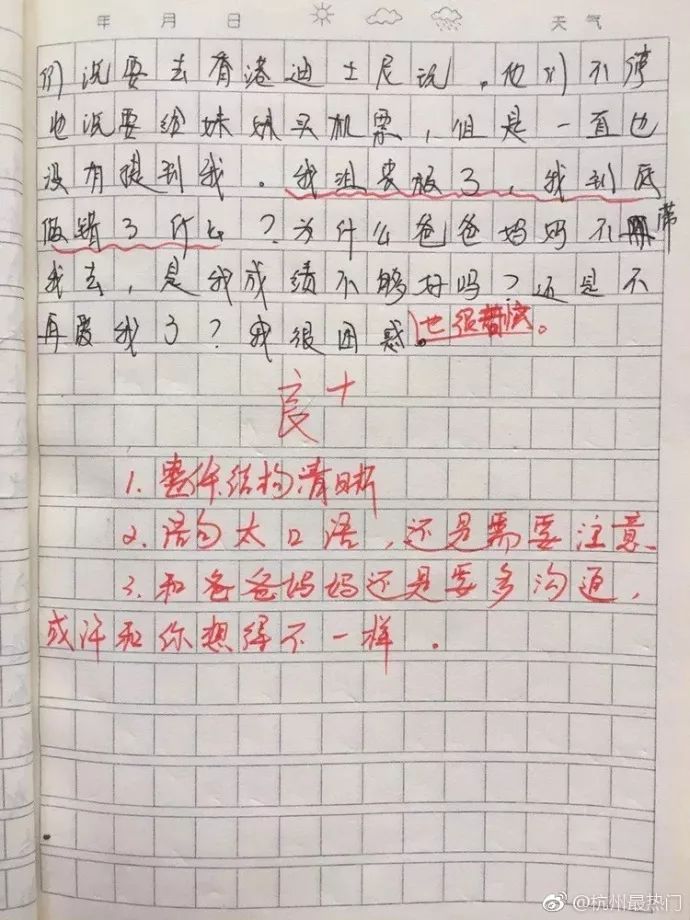 年 月 日 天气
们说要去香港迪士尼玩。他们不停
地说要给妹妹买机票，但是一直也
没有提到我。我沮丧极了，我到底
做错了什么？为什么爸爸妈妈不带
我去，是我成绩不够好吗？还是不
再爱我了？我很困惑。也很苦恼。
良+
1.整体结构清晰
2.语句太口语，还是需要注意
3.和爸爸妈妈还是要多沟通，
或许和你想得不一样。
@杭州最热门